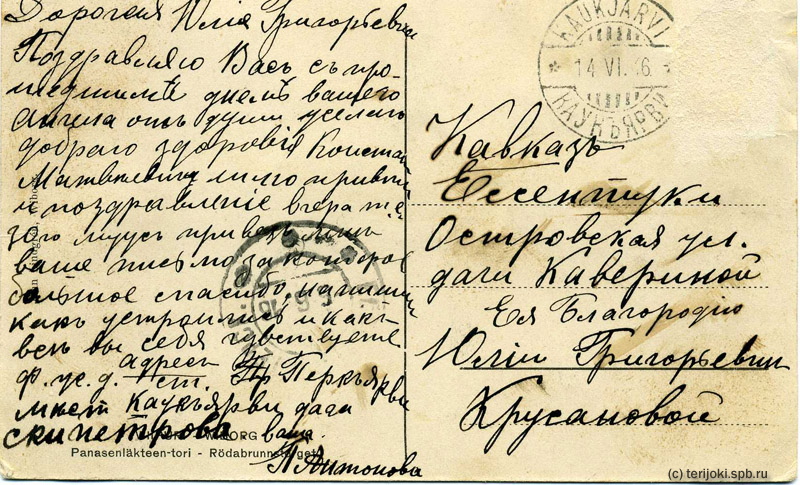 Дорогая Юлія Григорьевна
Поздравляю Васъ съ про-
шедшимъ днемъ вашего
ангела отъ души желаю
добраго здоровія
привет
и поздравленіе вчера
ваше письмо за которое
большое спасибо, напиши
какъ устроились и какъ
вы себя чувствуете
адресъ
Ф. ж. д. ст. Перкъярви
мѣст. Каукъярви дача
скипетрова ваша
П Антонова
Panasenläkteen-tori - Rödabrunnstorget
KAUKJÄRVI
14 VI. 16
КАУКЪЯРВИ
Кавказъ
Ессентуки
Островская ул.
дача Кавериной
Ея Благородію
Юліи Григорьевни
Хрусановой
(c) terijoki.spb.ru